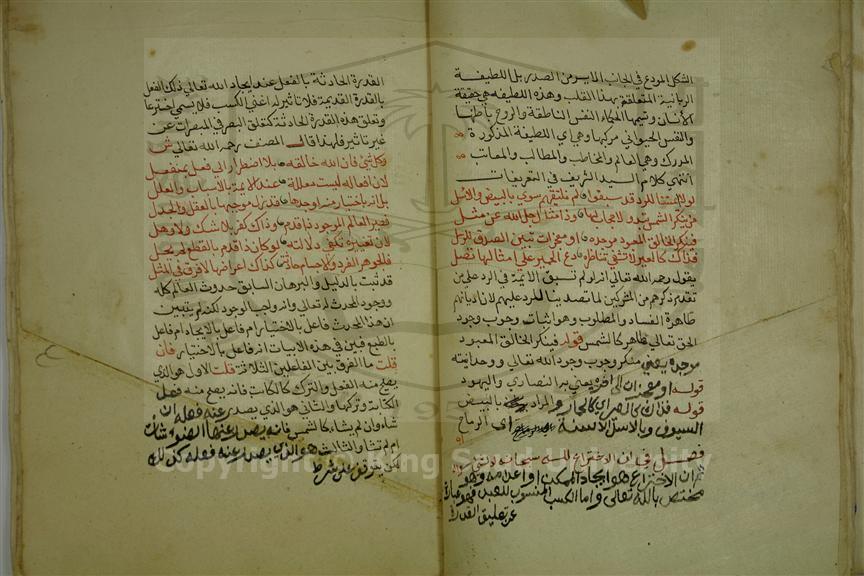 الشكل المودع في الجانب الايسر من الصدر بل اللطيفة
الربانية المتعلقة بهذا القلب وهذه اللطيفه هي حقيقة
الانسان وتسميها الحكماء النفس الناطقة والروح باطنها
والنفس الحيواني مركبها وهي اي اللطيفة المذكورة
المدرك وهي العالم والمخاطب والمطالب والمعاتب
انتهي كلام السيد الشريف في التعريفات
لولا ائمتنا للرد قد سبقوا لم نلتقيهم سوي بالبيض والاسل
من ينكر الشمس وذا متنا اجل الله عن مثل
فينكر الخالق المعبود موجده او معجزات تبين الصدق للرسل
فذاك كالعير لا تثني تناظره دع الحمير علي امثالها تصل
يقول رحمه الله تعالي انه لو لم تسبق الائمة في الرد علي من
تقدم ذكرهم من المشركين لما تصدينا للرد عليهم لان اديانهم
ظاهرة الفساد والمطلوب وهو اثبات وجوب وجود
الحق تعالي ظاهر كالشمس قوله فينكر الخالق المعبود
موجده يعني منكر وجوب وجود الله تعالي ووحدانيته
قوله او معجزات الي اخره يعني به النصاري واليهود
قوله فذاك كالعير اي كالحمار والمراد بالبيض
السيوف وبالاسل الاسنة اي الرماح
فصل في ان الاختراع لله سبحانه وتعالي
ان الاختراع هو ايجاد الممكن او اعدامه وهو
مختص بالله تعالي واما الكسب المنسوب للعبد فهو عبارة
عن تعليق القدرة
القدرة الحادثة بالفعل عند ايجاد الله تعالي ذلك الفعل
بالقدرة القديمة فلا تاثير له اعني الكسب فلا يسمي اختراعا
وتعلق هذه القدرة الحادثة كتعلق البصر في المبصرات عن
غير تاثير فلهذا قال المصنف رحمه الله تعالي ش
وكل شي فان الله خالقه بلا اضطرار الي فعل بمنفعل
لان افعاله ليست معللة عند الايمة بالاسباب والعلل
بل انه باختيار منه اوجدها
تغير العالم الموجود ذا قدم وذاك كفر بلا شك ولا وهل
لان تغييره تكفي دلالته لو كان ذا قدم بالقطع لم يحل
فالجوهر الفرد والاجسام حادث كذاك اعراضها لا فرق في المثل
قد ثبت بالدليل والبرهان السابق حدوث العالم كله
ووجود المحدث له تعالي وانه واجب الوجود لكنه لم يتبين
ان هذا المحدث فاعل بالاختيار ام فاعل بالايجاد ام فاعل
بالطبع فبين في هذه الابيات انه فاعل بالاختيار فان
قلت ما الفرق بين الفاعلين الثلاثة قلت الاول هو الذي
يصح منه الفعل والترك كالكاتب فانه يصح منه فعل
الكتابة وتركها والثاني هو الذي يصدر عنه فعله ان
شاء وان لم يشا كالشمس فانه يصدر عنها الضوء شات
ام لم تشا والثالث هو الذي يصدر عنه فعله كذلك
لكن يتوقف علي شرط
Copyright © King Saud University